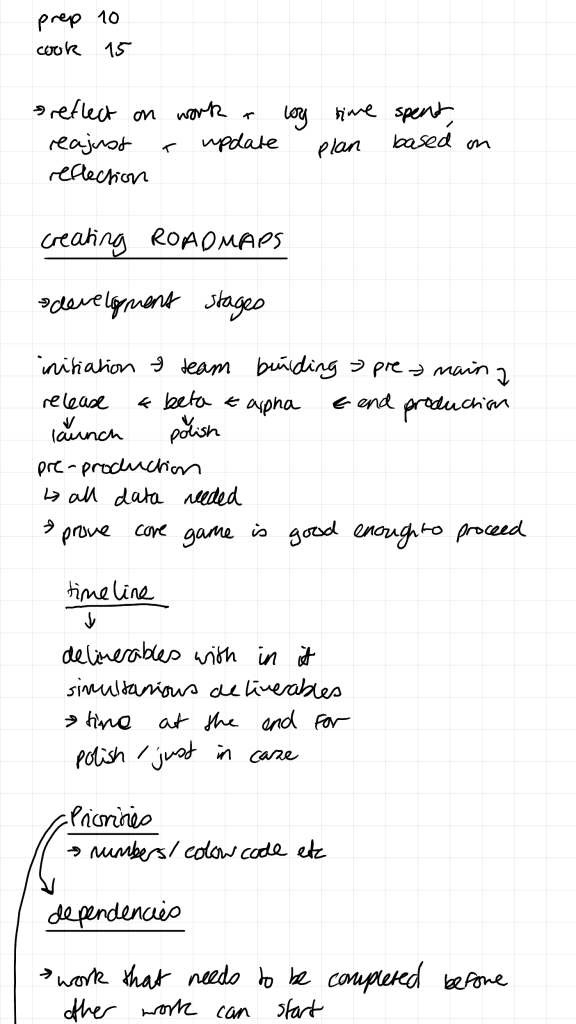 prep 10
cook 15
→ reflect on work + log time spent,
reajust + update plan based on
reflection
creating ROADMAPS
→ development stages
initiation → team building → pre → main ↴
release ← beta ← alpha ← end production
↓ ↓
launch polish
pre-production
↳ all data needed
→ prove core game is good enough to proceed
timeline
↓
deliverables with in it
simultanious deliverables
→ time at the end for
polish / just in case
Priorities
→ numbers / colour code etc
dependencies
→ work that needs to be completed before
other work can start